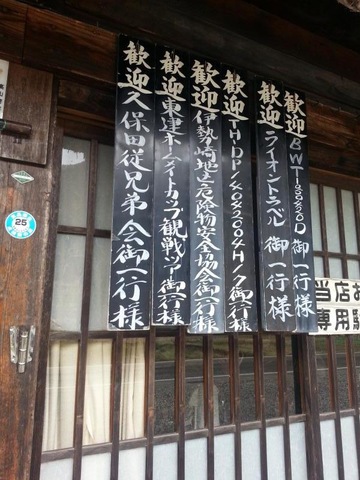 歓迎 BWT-180420D 御一行様
歓迎 ライオントラベル 御一行様
歓迎 TH-DP14042004H-ク御一行様
歓迎 伊勢崎地区危険物安全協会御一行様
歓迎 東建ホームメイトカップ観戦ツアー御一行様
歓迎 久保田従兄弟会御一行様
当店お
専用駐
25